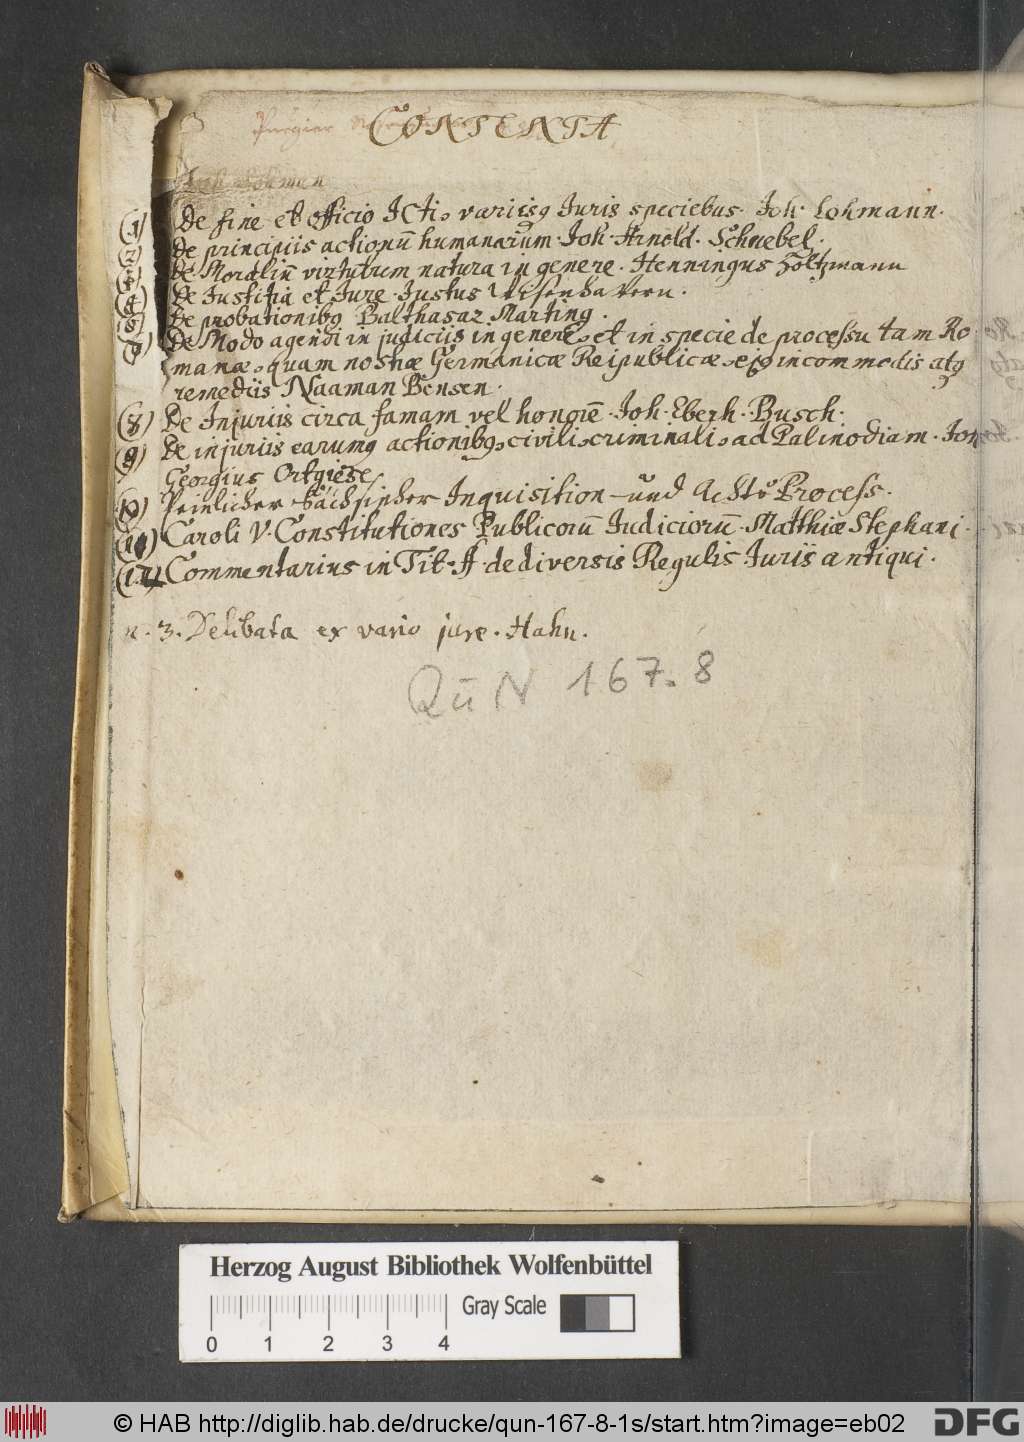 CONTENTA
(1) De fine et officio ICti, variisq Iuris speciebus. Joh. Lohmann.
(2) De principiis actionū humanarūm. Joh. Arnold. Schnebel.
De Moraliū virtutum natura in genere. Henningus Holtzmann
De Iustitia et Iure. Justus
De probationibq Balthasar Marting.
De Modo agendi in judiciis in genere, et in specie de processu tam Ro
manæ, quam nostræ Germanicæ Reipublicæ, ejq incommodis atq
remediis Naaman Bensen.
(8) De Injuriis circa famam vel honorē. Joh. Eberh. Busch.
(9) De injuriis earumq actionibq, civili, criminali, ad Palinodiam. Joh
Georgius Ortgiese
(10) Peinlicher Sächsischer Inquisition- und Achts Process.
(11) Caroli V. Constitutiones Publicorū Iudiciorū. Matthiæ Stephani.
(12) Commentarius in Tit. ff. de diversis Regulis Iuris antiqui.
n. 3. Delibata ex vario jure. Hahn.
QuN 167.8
Herzog August Bibliothek Wolfenbüttel
Gray Scale
0 1 2 3 4
© HAB http://diglib.hab.de/drucke/qun-167-8-1s/start.htm?image=eb02
DFG